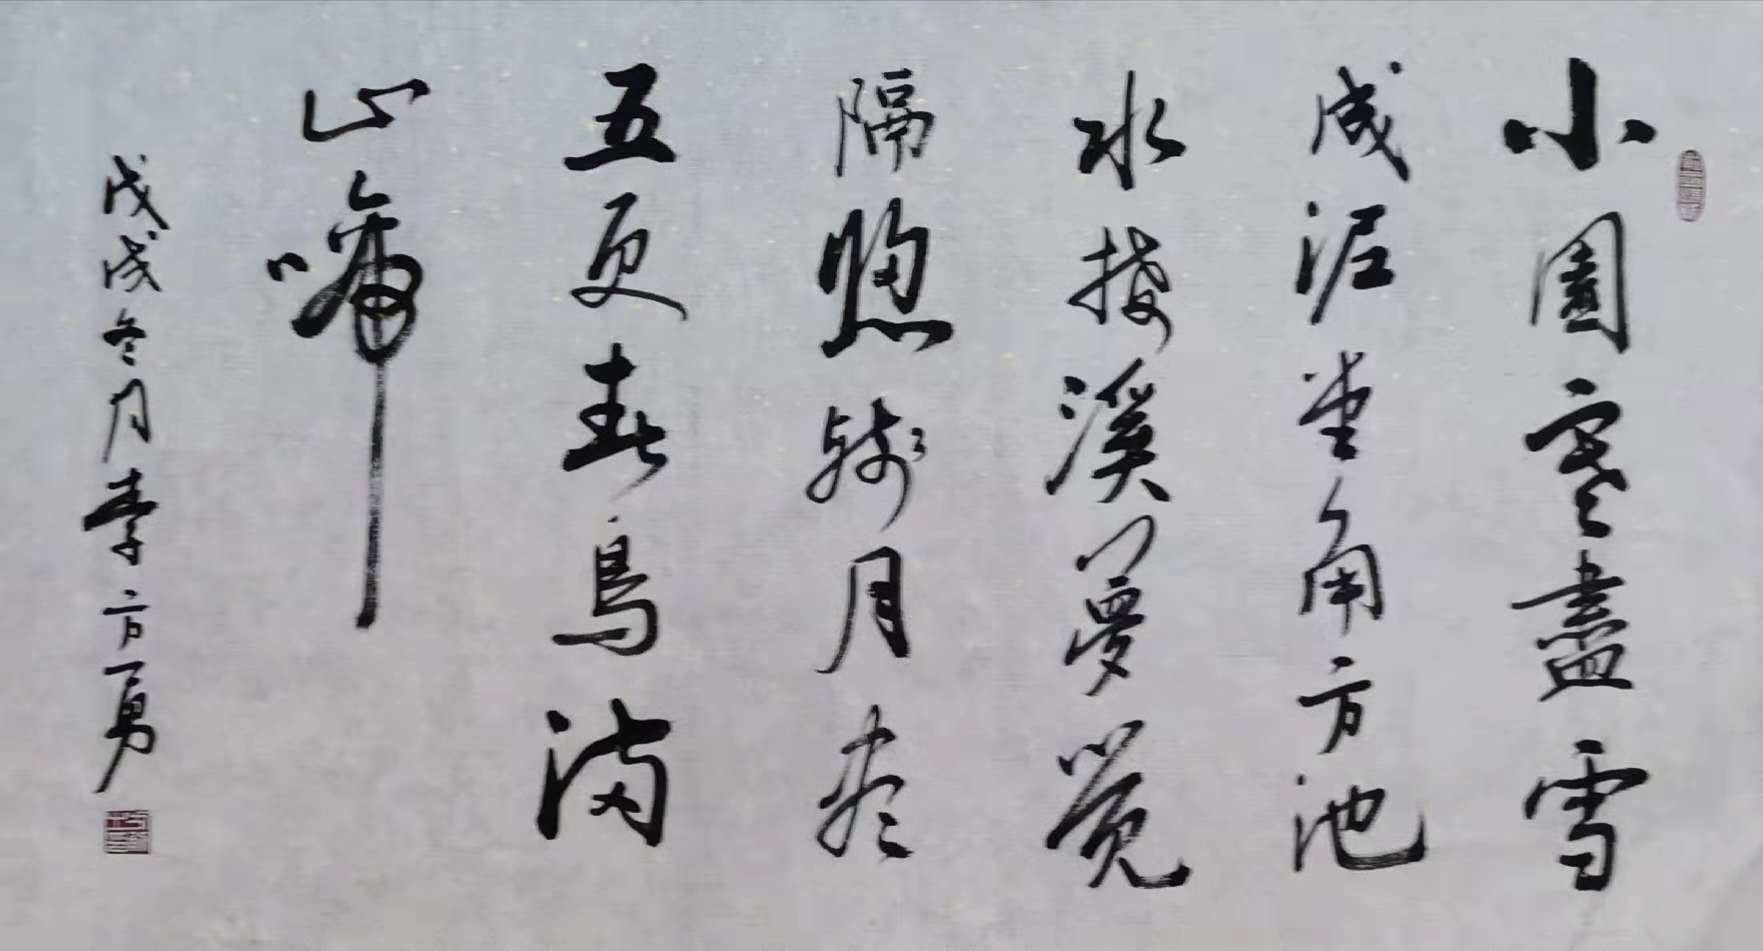 小園寒盡雪
成泥堂角方池
水接溪夢覺
隔窓殘月盡
五更春鳥滿
山啼
戊戌冬月李方勇